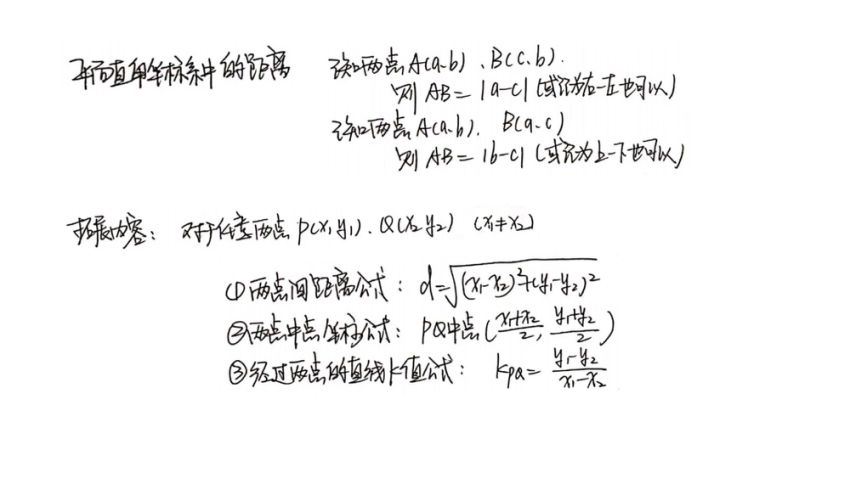 平面直角坐标系中的距离 已知两点A(a,b)、B(c,b).
则 AB=|a-c| (或记为右-左也可以)
已知两点A(a,b), B(a,c)
则 AB=|b-c| (或记为上-下也可以)
拓展内容: 对于任意两点P(x₁,y₁), Q(x₂,y₂) (x₁≠x₂)
①两点间距离公式: d=√((x₁-x₂)²+(y₁-y₂)²)
②两点中点坐标公式: PQ中点((x₁+x₂)/2, (y₁+y₂)/2)
③经过两点的直线k值公式: kPQ=(y₁-y₂)/(x₁-x₂)